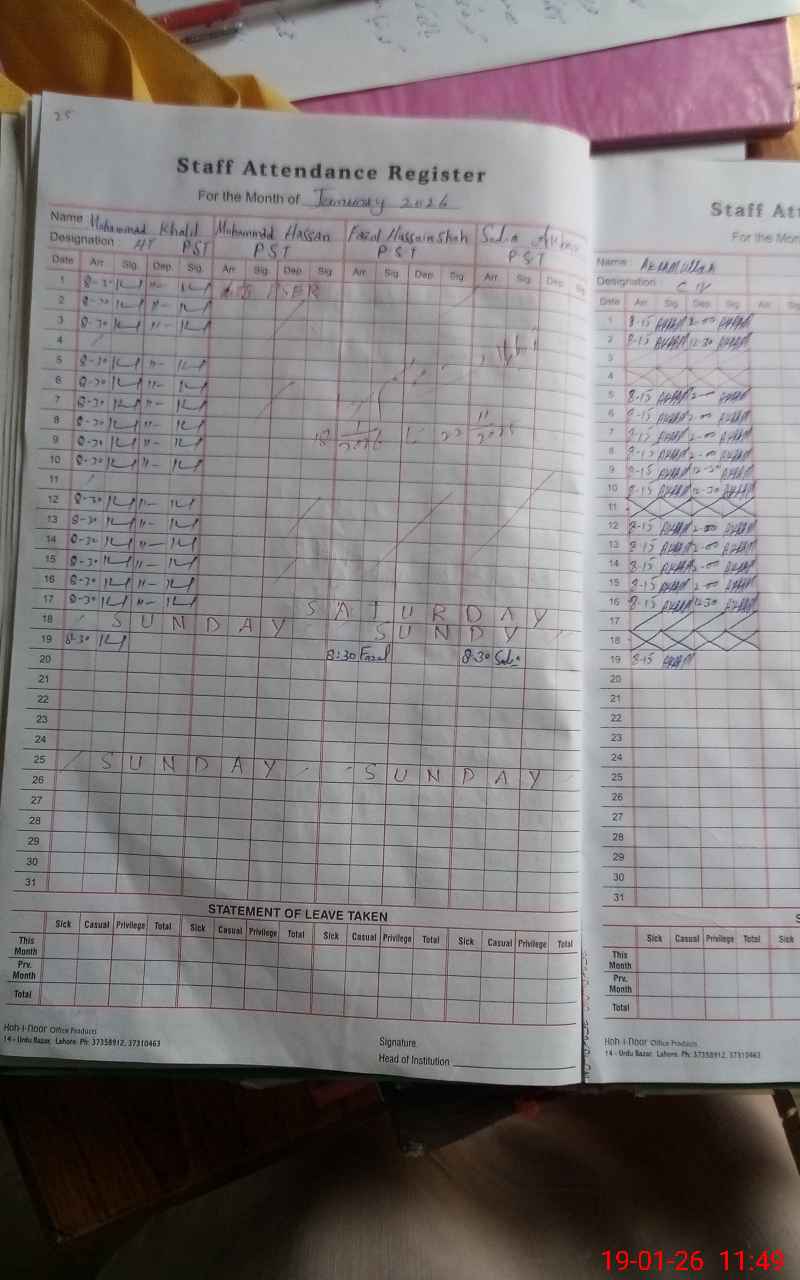 25
Staff Attendance Register
For the Month of January 2026
Name Muhammad Khalil Muhammad Hassan Fazal Hassain Shah Sadia
Designation HT PST PST PST PST
Date Arr. Sig. Dep. Sig. Arr. Sig. Dep. Sig. Arr. Sig. Dep. Sig. Arr. Sig. Dep. Sig.
1 8-30 11-
2 8-30 11-
3 8-30 11-
4
5 8-30 11-
6 8-30 11-
7 8-30 11-
8 8-30 11-
9 8-30 11-
10 8-30 11-
11
12 8-30 11-
13 8-30 11-
14 8-30 11-
15 8-30 11-
16 8-30 11-
17 8-30 11- SATURDAY
18 SUNDAY SUNDY
19 8-30 8:30 Fazal 8-30 Sadia
20
21
22
23
24
25 SUNDAY SUNDAY
26
27
28
29
30
31
STATEMENT OF LEAVE TAKEN
Sick Casual Privilege Total Sick Casual Privilege Total Sick Casual Privilege Total Sick Casual Privilege Total
This Month
Prv. Month
Total
Koh-i-Noor Office Products
14 - Urdu Bazar, Lahore. Ph: 37358912, 37310463
Signature.
Head of Institution
Staff Att
For the Mon
Name: AKRAMULLAH
Designation:
Date Arr. Sig. Dep. Sig. Arr. Sig.
1 8-15 AKRAM 2-00 AKRAM
2 8-15 AKRAM 12-30 AKRAM
3
4
5 8-15 AKRAM 2-00 AKRAM
6 8-15 AKRAM 2-00 AKRAM
7 8-15 AKRAM 2-00 AKRAM
8 8-15 AKRAM 2-00 AKRAM
9 8-15 AKRAM 12-30 AKRAM
10 8-15 AKRAM 12-30 AKRAM
11
12 8-15 AKRAM 2-00 AKRAM
13 8-15 AKRAM 2-00 AKRAM
14 8-15 AKRAM 2-00 AKRAM
15 8-15 AKRAM 2-00 AKRAM
16 8-15 AKRAM 12-30 AKRAM
17
18
19 8-15 AKRAM
20
21
22
23
24
25
26
27
28
29
30
31
Sick Casual Privilege Total Sick
This Month
Prv. Month
Total
Koh-i-Noor Office Products
14 - Urdu Bazar, Lahore. Ph: 37358912, 37310463
19-01-26 11:49